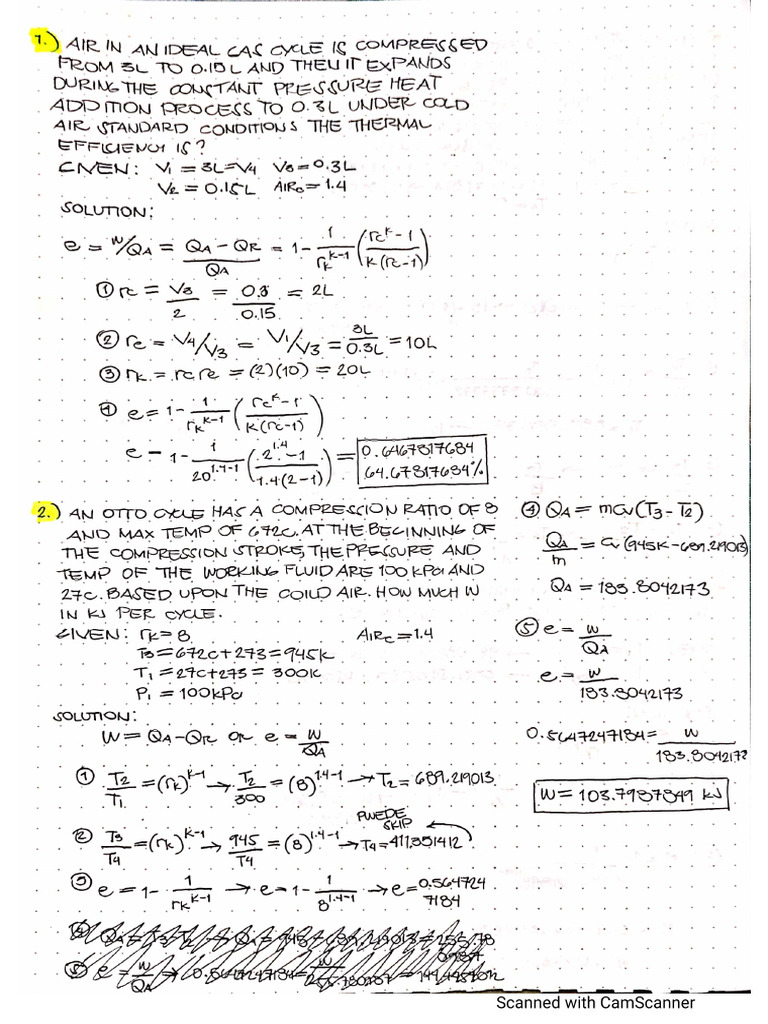 1.) AIR IN AN IDEAL GAS CYCLE IS COMPRESSED
FROM 3L TO 0.15L AND THEN IT EXPANDS
DURING THE CONSTANT PRESSURE HEAT
ADDITION PROCESS TO 0.3L UNDER COLD
AIR STANDARD CONDITIONS THE THERMAL
EFFICIENCY IS?
GIVEN: V1 = 3L = V4 V3 = 0.3L
V2 = 0.15L AIRc = 1.4
SOLUTION:
e = W/QA = (QA - QR)/QA = 1 - 1/rk^(k-1) ((rc^k - 1)/(k(rc-1)))
① rc = V3/2 = 0.3/0.15 = 2L
② re = V4/V3 = V1/V3 = 3L/0.3L = 10L
③ rk = rcre = (2)(10) = 20L
④ e = 1 - 1/rk^(k-1) ((rc^k - 1)/(k(rc-1)))
e - 1 - 1/20^(1.4-1) ((2^1.4 - 1)/(1.4(2-1))) = 0.6467817684
64.67817684%
2.) AN OTTO CYCLE HAS A COMPRESSION RATIO OF 8
AND MAX TEMP OF 672C. AT THE BEGINNING OF
THE COMPRESSION STROKE, THE PRESSURE AND
TEMP OF THE WORKING FLUID ARE 100 KPa AND
27C. BASED UPON THE COILD AIR. HOW MUCH W
IN KJ PER CYCLE.
GIVEN: rk = 8 AIRc = 1.4
T3 = 672C + 273 = 945K
T1 = 27C + 273 = 300K
P1 = 100KPa
SOLUTION:
W = QA - QR or e = W/QA
① T2/T1 = (rk)^(k-1) → T2/300 = (8)^(1.4-1) → T2 = 689.219013
PWEDE SKIP
② T3/T4 = (rk)^(k-1) → 945/T4 = (8)^(1.4-1) → T4 = 411.331412
③ e = 1 - 1/rk^(k-1) → e = 1 - 1/8^(1.4-1) → e = 0.564724
7184
④ QA = mCv(T3 - T2)
QA/m = Cv(945K - 689.219013)
QA = 183.8042173
⑤ e = W/QA
e = W/183.8042173
0.5647247184 = W/183.8042173
W = 103.7987849 KJ
Scanned with CamScanner